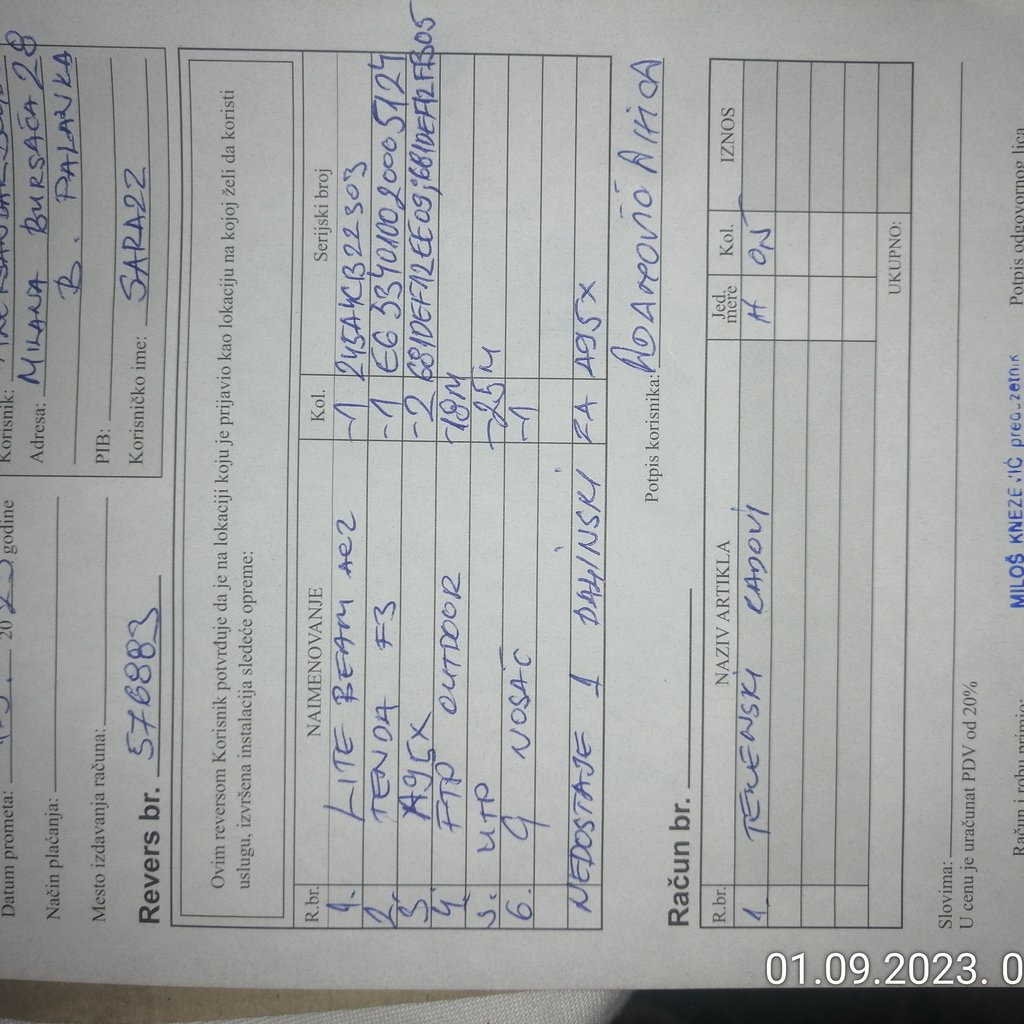 Korisnik:
Adresa: MILANA BURSAĆA 28
B. PALANKA
PIB:
Korisničko ime: SARA22
Datum prometa: 20 godine
Način plaćanja:
Mesto izdavanja računa:
Revers br. 576883
Ovim reversom Korisnik potvrđuje da je na lokaciji koju je prijavio kao lokaciju na kojoj želi da koristi
uslugu, izvršena instalacija sledeće opreme:
R.br. NAIMENOVANJE Kol. Serijski broj
1. LITE BEAM AC2 -1 245A4CB22303
2. TENDA F3 -1 E6334010020005124
3. A95X -2
4. FTP OUTDOOR -18M
5. UTP -25M
6. G NOSAČ -1
NEDOSTAJE 1 DALJINSKI ZA A95X
Potpis korisnika:
Račun br.
R.br. NAZIV ARTIKLA Jed. mere Kol. IZNOS
1. TERENSKI RADOVI H 0,5
UKUPNO:
Slovima:
U cenu je uračunat PDV od 20%
Račun i robu primio:
Potpis odgovornog lica
MILOŠ
01.09.2023. 0